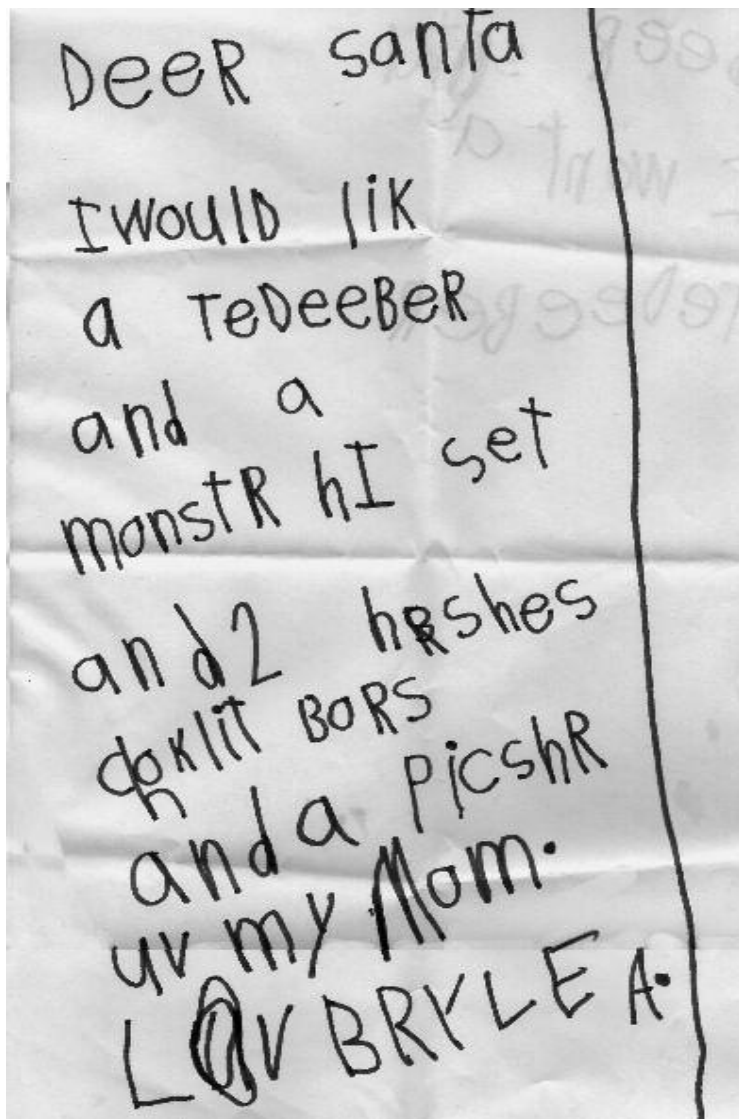 DeeR santa
I WOULD liK
a TeDeeBeR
and a
monstR hI set
and 2 hRshes
choklit BORS
and a PicshR
uv my Mom.
LOV BRYLEE A.